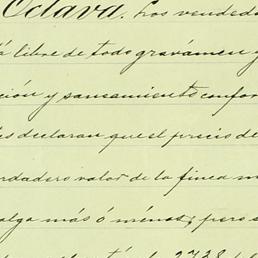 Octava. Los vended
á libre de todo gravámen y
ción y saneamiento confor
es declaran que el precio de
rdadero valor de la finca m
alga más ó ménos; pero s
2728